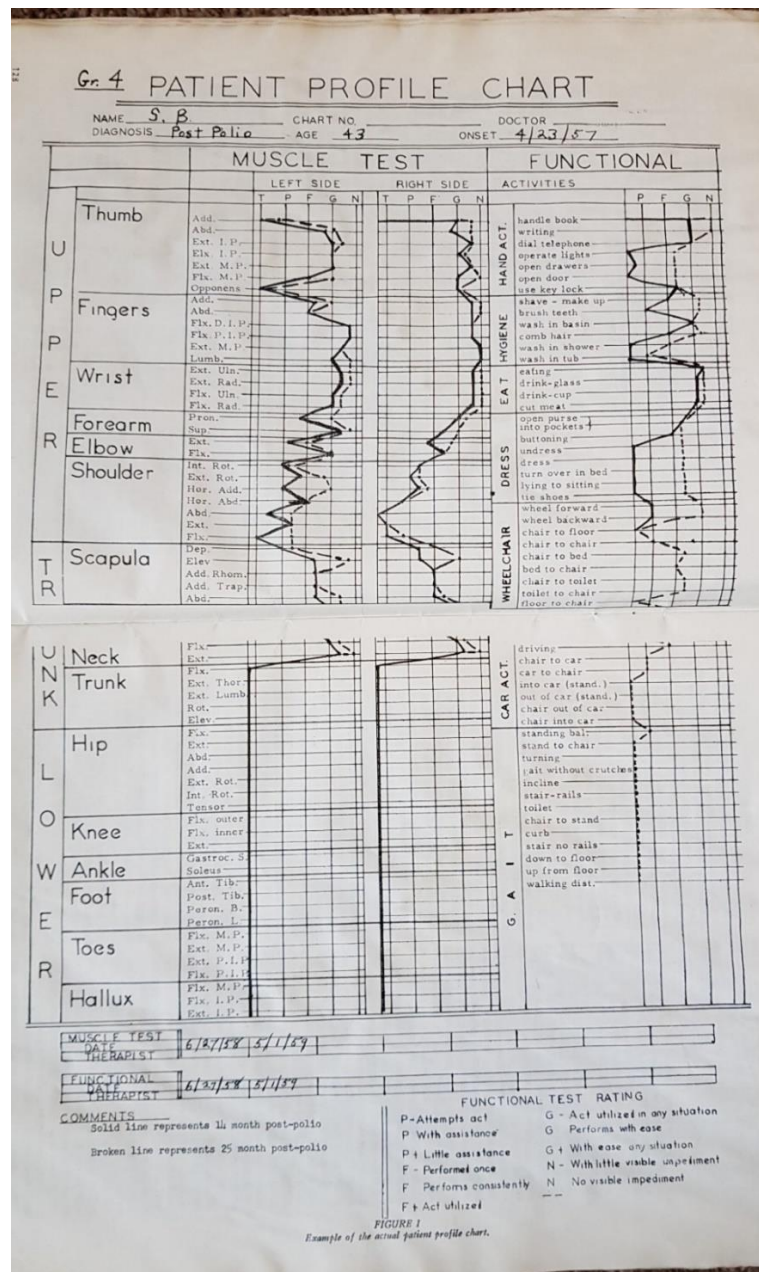 128
Gr. 4 PATIENT PROFILE CHART
NAME S. B. CHART NO. DOCTOR
DIAGNOSIS Post Polio AGE 43 ONSET 4/23/57
MUSCLE TEST FUNCTIONAL
LEFT SIDE RIGHT SIDE ACTIVITIES
T P F G N T P F G N P F G N
UPPER
Thumb
Add.
Abd.
Ext. I.P.
Elx. I.P.
Ext. M.P.
Flx. M.P.
Opponens
Fingers
Add.
Abd.
Flx. D.I.P.
Flx. P.I.P.
Ext. M.P
Lumb.
Wrist
Ext. Uln.
Ext. Rad.
Flx. Uln.
Flx. Rad.
Forearm
Pron.
Sup.
Elbow
Ext.
Flx.
Shoulder
Int. Rot.
Ext. Rot.
Hor. Add.
Hor. Abd.
Abd.
Ext.
Flx.
TRUNK
Scapula
Dep.
Elev
Add. Rhom.
Add. Trap.
Abd.
Neck
Flx.
Ext.
Trunk
Flx.
Ext. Thor.
Ext. Lumb.
Rot.
Elev.
LOWER
Hip
Fix.
Ext.
Abd.
Add.
Ext. Rot.
Int. Rot.
Tensor
Knee
Flx. outer
Flx. inner
Ext.
Ankle
Gastroc. S.
Soleus
Foot
Ant. Tib.
Post. Tib.
Peron. B.
Peron. L.
Toes
Flx. M.P.
Ext. M.P.
Ext. P.I.P
Flx. P.I.P
Hallux
Flx. M.P.
Flx. I.P.
Ext. I.P.
HAND ACT.
handle book
writing
dial telephone
operate lights
open drawers
open door
use key lock
HYGIENE
shave - make up
brush teeth
wash in basin
comb hair
wash in shower
wash in tub
EAT
eating
drink-glass
drink-cup
cut meat
DRESS
open purse
into pockets
buttoning
undress
dress
turn over in bed
lying to sitting
tie shoes
WHEELCHAIR
wheel forward
wheel backward
chair to floor
chair to chair
chair to bed
bed to chair
chair to toilet
toilet to chair
floor to chair
CAR ACT.
driving
chair to car
car to chair
into car (stand.)
out of car (stand.)
chair out of car
chair into car
GAIT
standing bal.
stand to chair
turning
gait without crutches
incline
stair-rails
toilet
chair to stand
curb
stair no rails
down to floor
up from floor
walking dist.
MUSCLE TEST
DATE 6/27/58 5/1/59
THERAPIST
FUNCTIONAL
DATE 6/27/58 5/1/59
THERAPIST
COMMENTS
Solid line represents 14 month post-polio
Broken line represents 25 month post-polio
FUNCTIONAL TEST RATING
P-Attempts act
P With assistance
P + Little assistance
F - Performed once
F Perfoms consistently
F + Act utilized
G - Act utilized in any situation
G Performs with ease
G + With ease any situation
N - With little visible unpediment
N No visible impediment
FIGURE 1
Example of the actual patient profile chart.